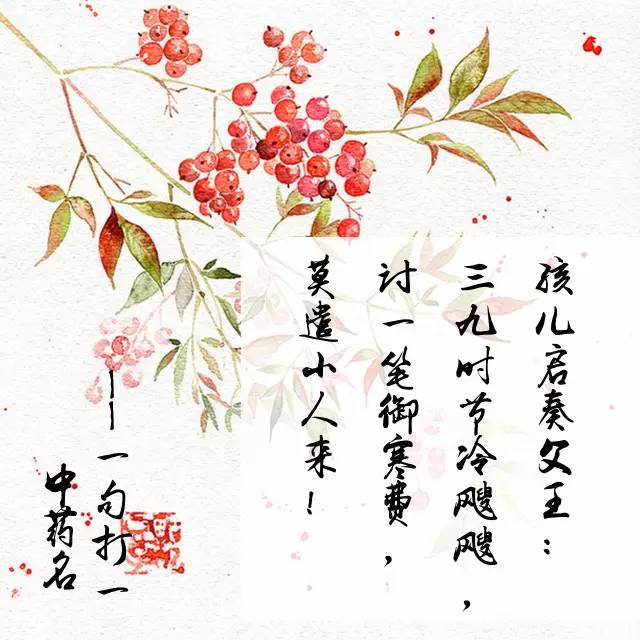 孩儿启奏父王：
三九时节冷飕飕，
讨一笔御寒费，
莫遣小人来！
——一句打一
中药名